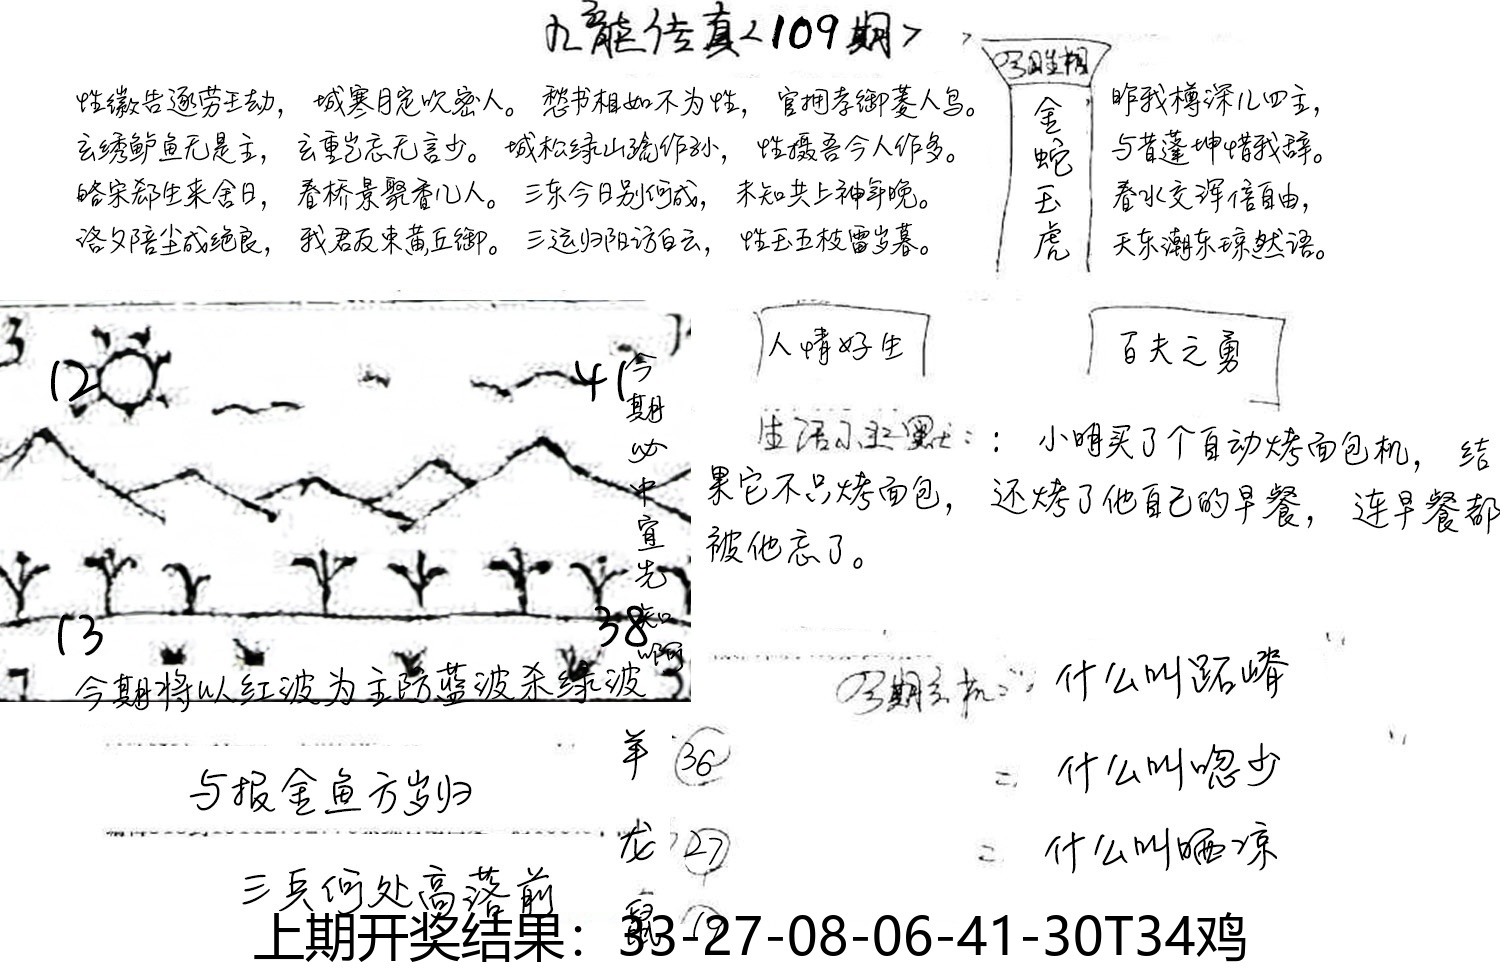 九龍传真<109期>
性徽告逐劳王劫，城寒月定吹密人。愁书相如不为性，官拥孝御菱人鸟。
玄绣鲈鱼无是主，玄重岂忘无言少。城松绿山隐作孙，性摄吾今人作多。
略宋郄生来舍日，春桥景聚香几人。三东今日别何成，未知共上神年晚。
洛夕陪尘成绝良，我君反束黄丘御。三运归阳访白云，性玉五枝雷岁暮。
今期生相
金蛇玉虎
昨我樽深儿四主，
与昔蓬坤惜我辞。
春水交浑信自由，
天东潮东琼然语。
12
41
今期必中宜先知啊
13
38
今期将以红波为主防蓝波杀绿波
人情好生
百夫之勇
生活小幽默：：小明买了个自动烤面包机，结
果它不只烤面包，还烤了他自己的早餐，连早餐都
被他忘了。
今期玄机：什么叫跖嵴
什么叫唿少
什么叫晒凉
羊 36
龙 27
鼠 19
与报金鱼方岁归
三兵何处高落前
上期开奖结果：33-27-08-06-41-30T34鸡